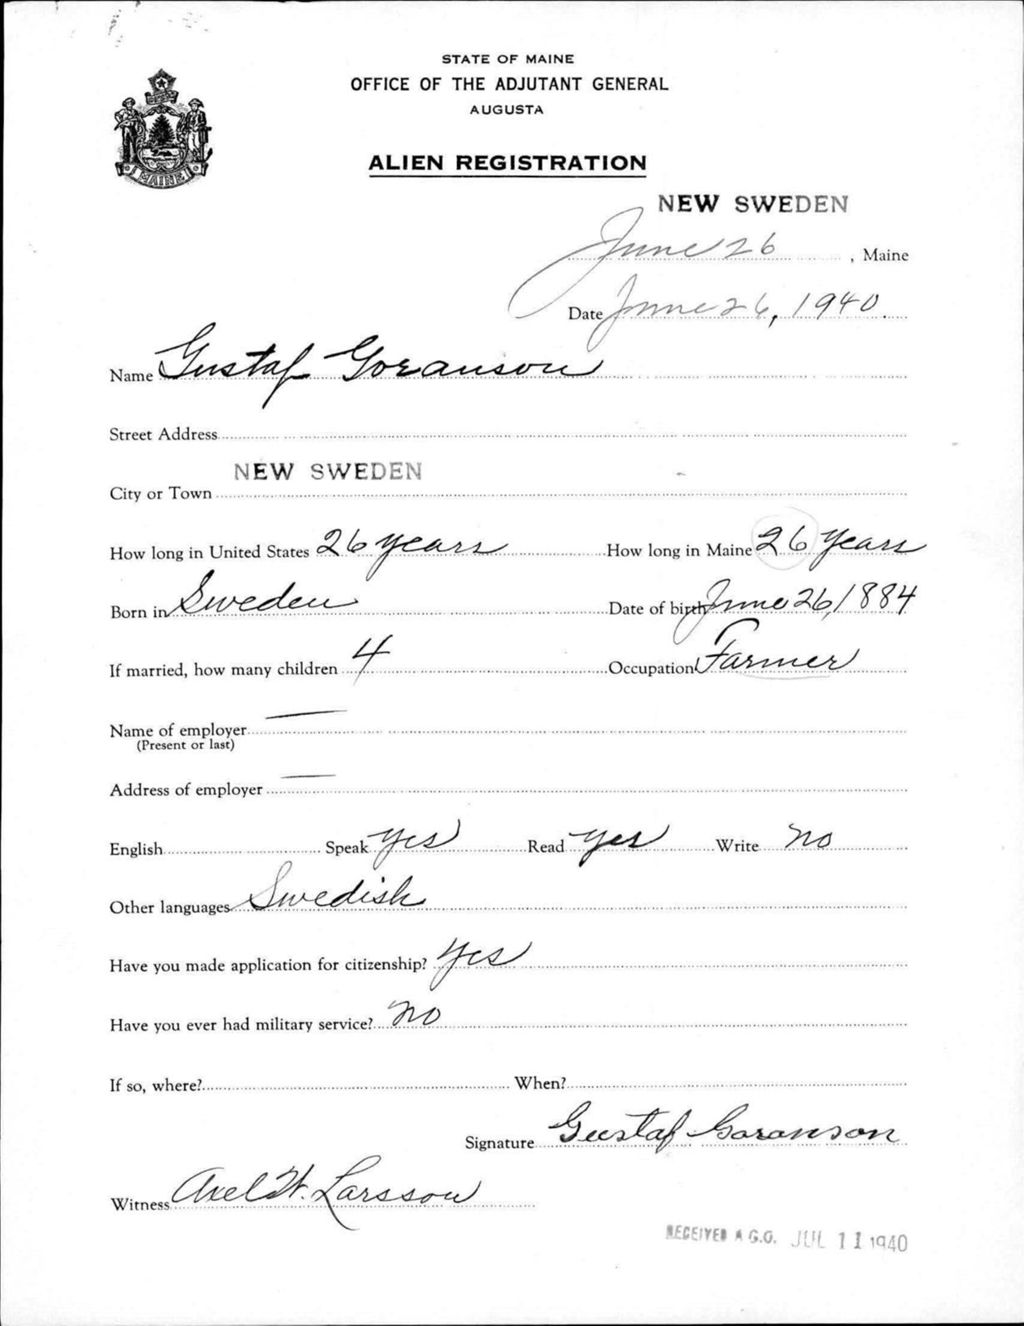 STATE OF MAINE
OFFICE OF THE ADJUTANT GENERAL
AUGUSTA
MAINE
ALIEN REGISTRATION
NEW SWEDEN
June 26, Maine
Date June 26, 1940
Name Gustaf Goranson
Street Address
NEW SWEDEN
City or Town
How long in United States 26 years How long in Maine 26 Years
Born in Sweden Date of birth June 26, 1884
If married, how many children 4 Occupation Farmer
Name of employer
(Present or last)
Address of employer
English Speak yes Read yes Write no
Other languages Swedish
Have you made application for citizenship? Yes
Have you ever had military service? no
If so, where? When?
Signature Gustaf Goranson
Witness Axel W. Larsson
RECEIVED A.G.O. JUL 11 1940